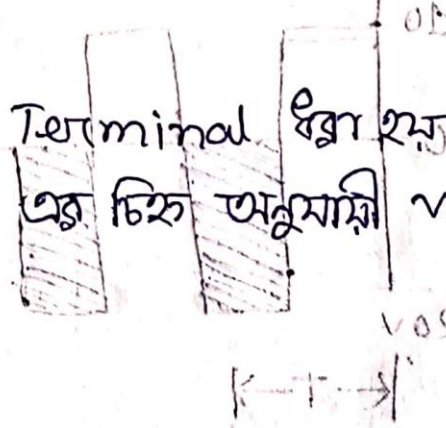 Terminal ধরা হয়
এর চিহ্ন অনুযায়ী v
T